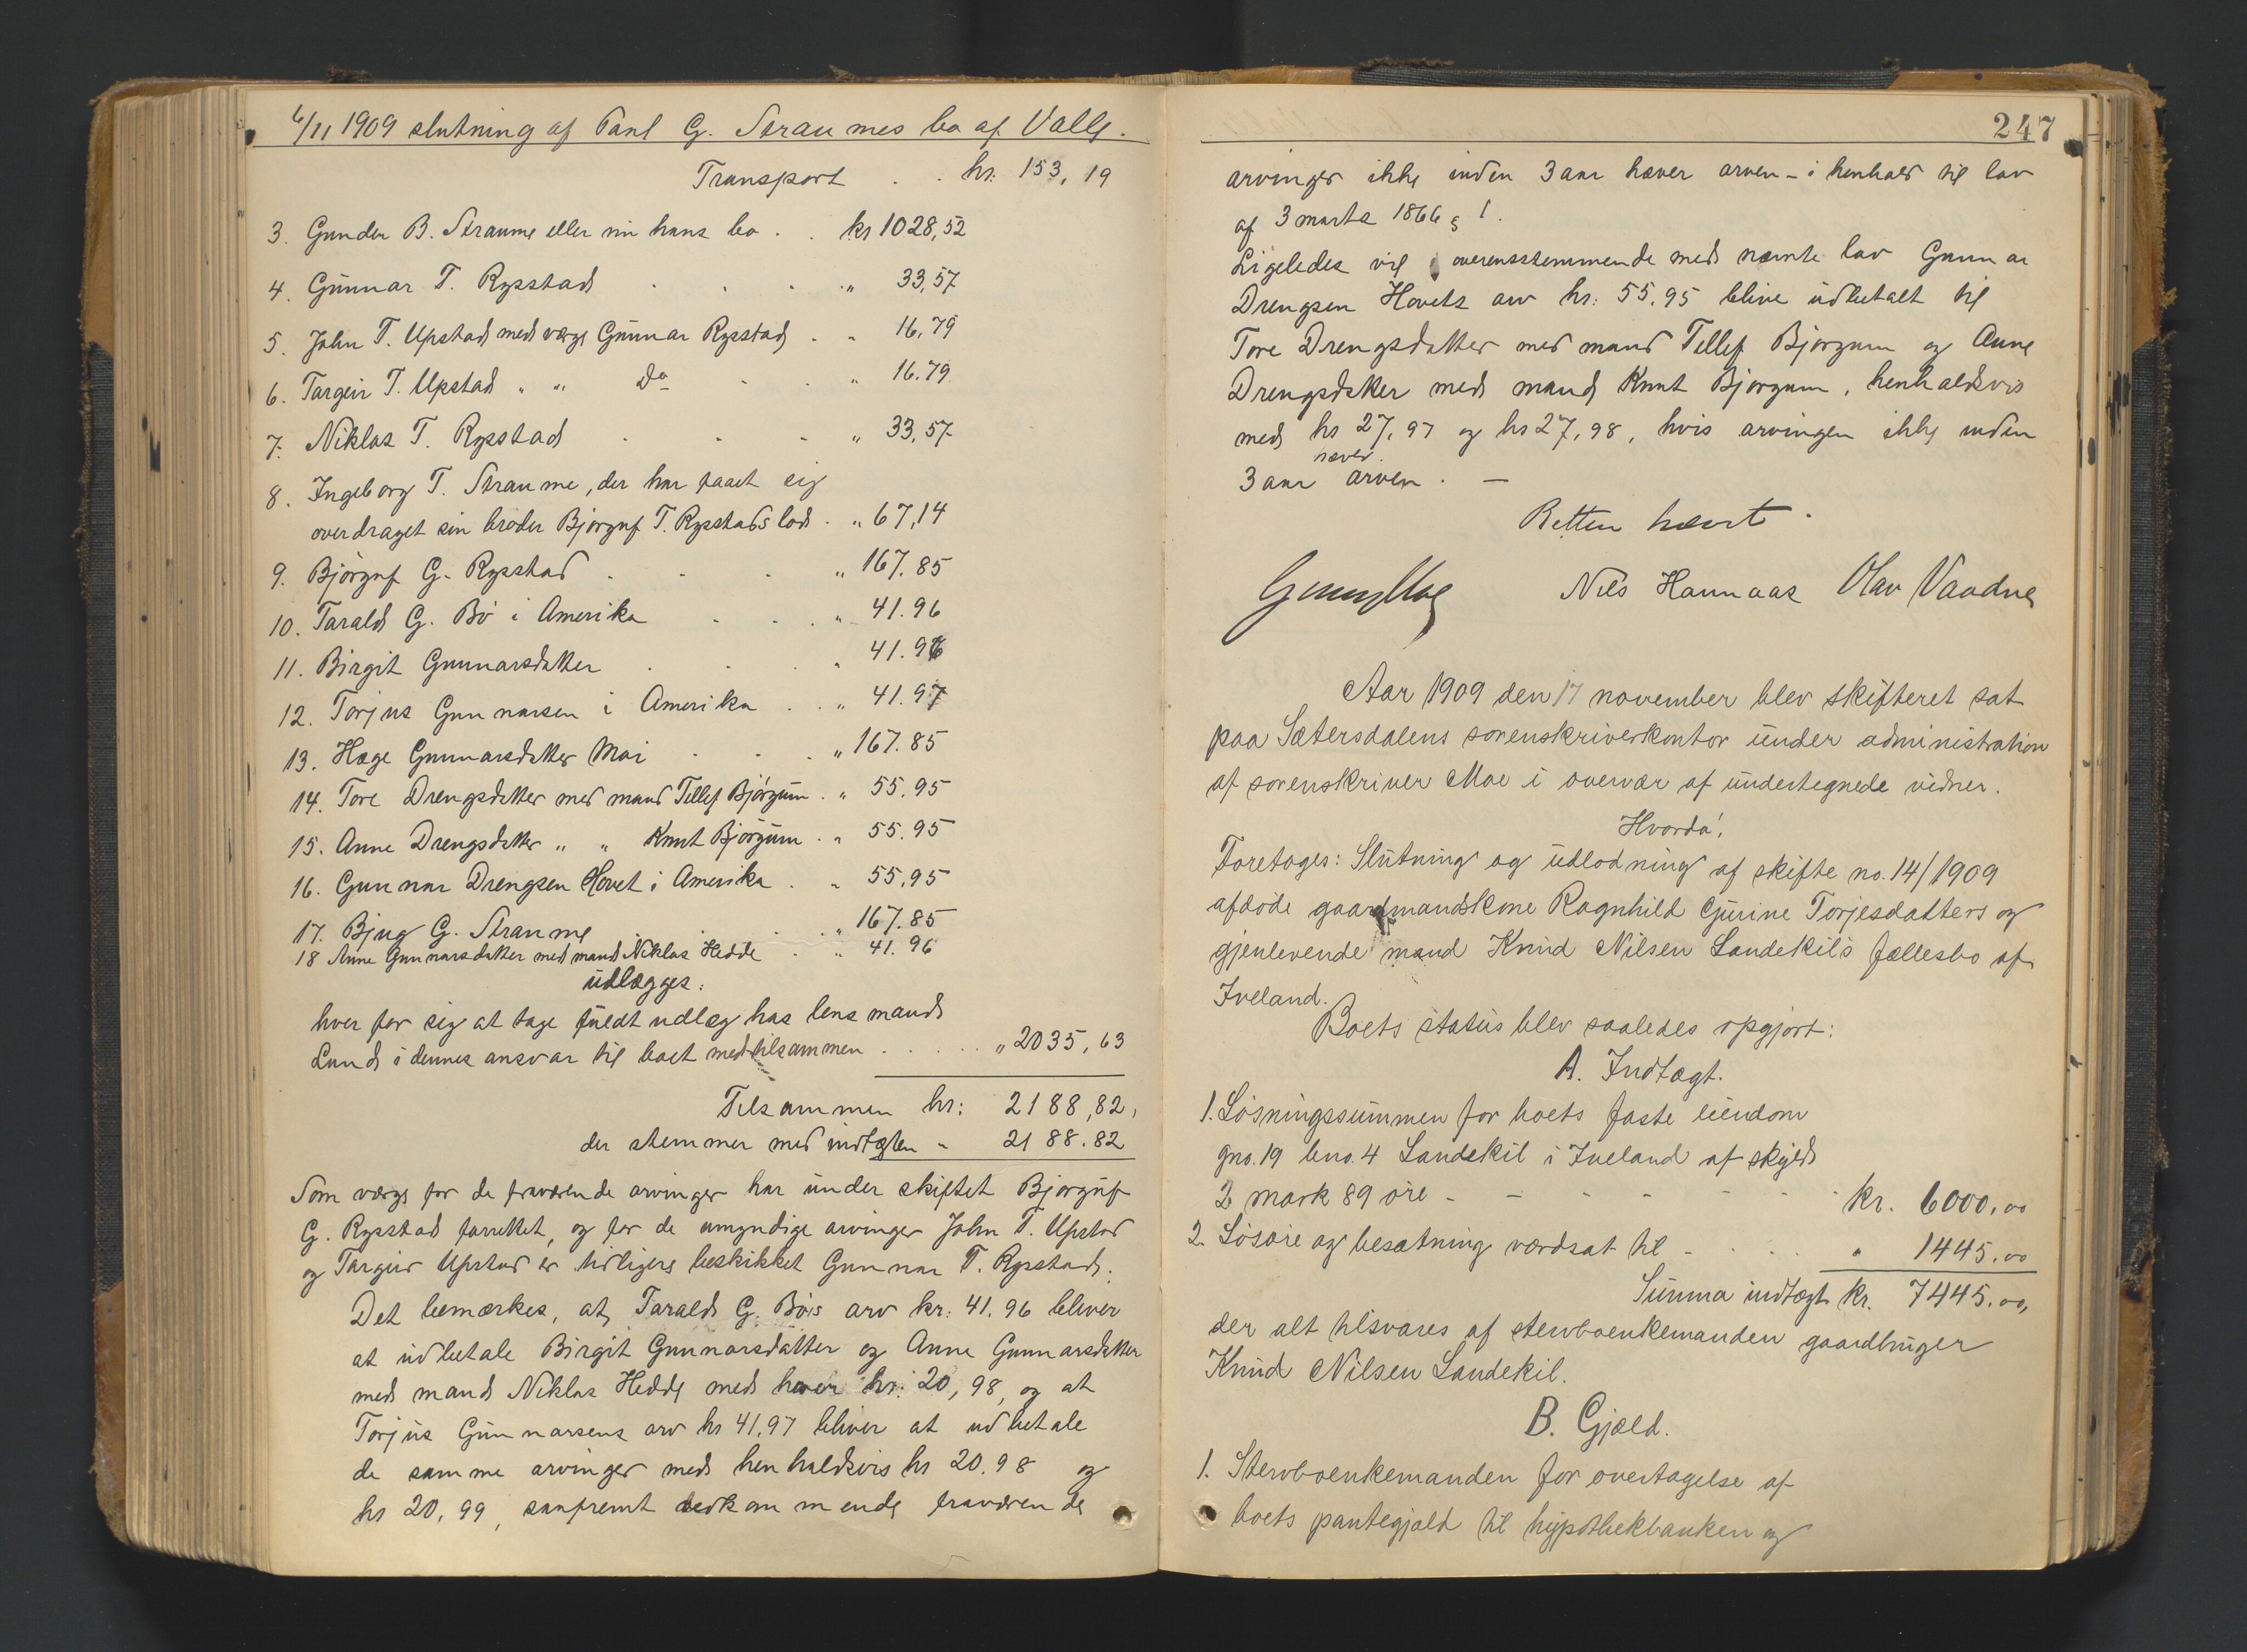 6/11 1909 slutning af Paul G. Straumes bo af Valle.
Transport . . kr. 153,19
3. Gunder B. Straume eller nu hans bo . . kr 1028,52
4. Gunnar T. Rysstad . . . . „ 33,57
5. John T. Upstad med værge Gunnar Rysstad . „ 16,79
6. Targeir T. Upstad „ „ do . . „ 16.79
7. Niklas T. Rysstad . . . „ 33,57
8. Ingeborg T. Straume, der har faaet sig
overdraget sin broder Bjørguf T. Rysstads lod . „ 67,14
9. Bjørguf G. Rysstad . . . „ 167.85
10. Tarald G. Bø i Amerika . . . „ 41.96
11. Birgit Gunnarsdatter . . . „ 41.96
12. Torjus Gunnarsen i Amerika . . „ 41.97
13. Hæge Gunnarsdatter Moi . . . „ 167.85
14. Tore Drengsdatter med mand Tellef Bjørgum . „ 55.95
15. Anne Drengsdatter „ „ Knut Bjørgum . „ 55.95
16. Gunnar Drengsen Hovet i Amerika . „ 55.95
17. Bjug G. Straume . . . „ 167.85
18 Anne Gunnarsdatter med mand Niklas Hedde . „ 41.96
udlægges:
hver for sig at tage fuldt udlæg hos lensmand
Lund i dennes ansvar til boet med tilsammen . . . . . „ 2035,63
Tilsammen kr: 2188,82,
der stemmer med indtægten „ 2188.82
Som værge for de fraværende arvinger har under skiftet Bjørguf
G. Rysstad forrettet, og for de umyndige arvinger John T. Upstad
og Targeir Upstad er tidligere beskikket Gunnar T. Rysstad.
Det bemærkes, at Tarald G. Bøs arv kr: 41.96 bliver
at udbetale Birgit Gunnarsdatter og Anne Gunnarsdatter
med mand Niklas Hedde med hver kr: 20,98, og at
Torjus Gunnarsens arv kr 41,97 bliver at udbetale
de samme arvinger med henholdsvis kr 20.98 og
kr 20,99, saafremt vedkommende fraværende
247
arvinger ikke inden 3 aar hæver arven - i henhold til lov
af 3 marts 1866 § 1.
Ligeledes vil overensstemmende med nævnte lov Gunnar
Drengsen Hovets arv kr: 55.95 blive udbetalt til
Tore Drengsdatter med mand Tellef Bjørgum og Anne
Drengsdatter med mand Knut Bjørgum, henholdsvis
med kr 27,97 og kr 27,98, hvis arvingen ikke inden
hæver
3 aar arven. —
Retten hævet.
Nils Hannaas Olav Vaadne
Aar 1909 den 17 november blev skifteret sat
paa Sætersdalens sorenskriverkontor under administration
af sorenskriver Moe i overvær af undertegnede vidner.
Hvorda!
Foretages: Slutning og udlodning af skifte no. 14/1909
afdøde gaardmandskone Ragnhild Gurine Torjesdatters og
gjenlevende mand Knud Nilsen Landekils fællesbo af
Iveland.
Boets status blev saaledes opgjort:
A. Indtægt.
1. Løsningssummen for boets faste eiendom
gno. 19 bno. 4 Landekil i Iveland af skyld
2 mark 89 øre - - - - - - . kr. 6000.00
2. Løsøre og besætning værdsat til - . . . . „ 1445.00
Summa indtægt kr. 7445.00,
der alt tilsvares af stervboenkemanden gaardbruger
Knud Nilsen Landekil.
B. Gjæld.
1. Stervboenkemanden for overtagelse af
boets pantegjæld til hypothekbanken og